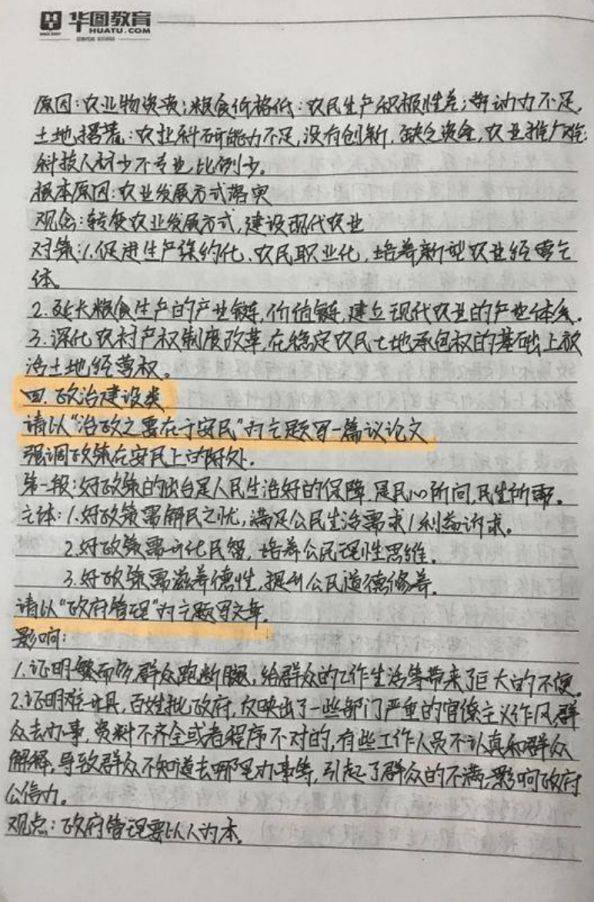 华图教育
HUATU.COM
原因：农业物资贵；粮食价格低：农民生产积极性差；劳动力不足，
土地撂荒：农业科研能力不足，没有创新，缺乏资金，农业推广难；
科技人材少不专业，比例少。
根本原因：农业发展方式落实
观念：转变农业发展方式，建设现代农业
对策：1.促进生产集约化、农民职业化，培养新型农业经营主
体。
2.延长粮食生产的产业链，价值链，建立现代农业的产业体系。
3.深化农村产权制度改革，在稳定农民土地承包权的基础上放
活土地经营权。
四.政治建设类
请以“治政之要在于安民”为主题写一篇议论文
强调政策在安民上的好处。
第一报：好政策的出台是人民生活好的保障，是民心所向，民生所需。
主体：1.好政策需解民之忧，满足公民生活需求/利益诉求。
2.好政策需开化民智，培养公民理性思维。
3.好政策需滋养德性，提升公民道德修养。
请以“政府管理”为主题写文章。
影响：
1.证明繁而多，群众跑断腿，给群众的工作生活等带来了巨大的不便。
2.证难开具，百姓批政府，反映出了一些部门严重的官僚主义作风，群
众去办事，资料不齐全或者程序不对的，有些工作人员不认真和群众
解释，导致群众不知道去哪里办事等，引起了群众的不满，影响政府
公信力。
观点：政府管理要以人为本。